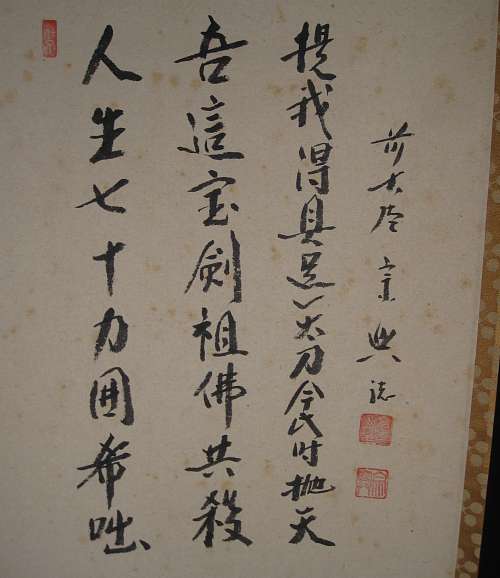 人生七十力囲希咄
吾這宝剣祖佛共殺
提我得具足一太刀今此时抛天
前大徳宗興誌